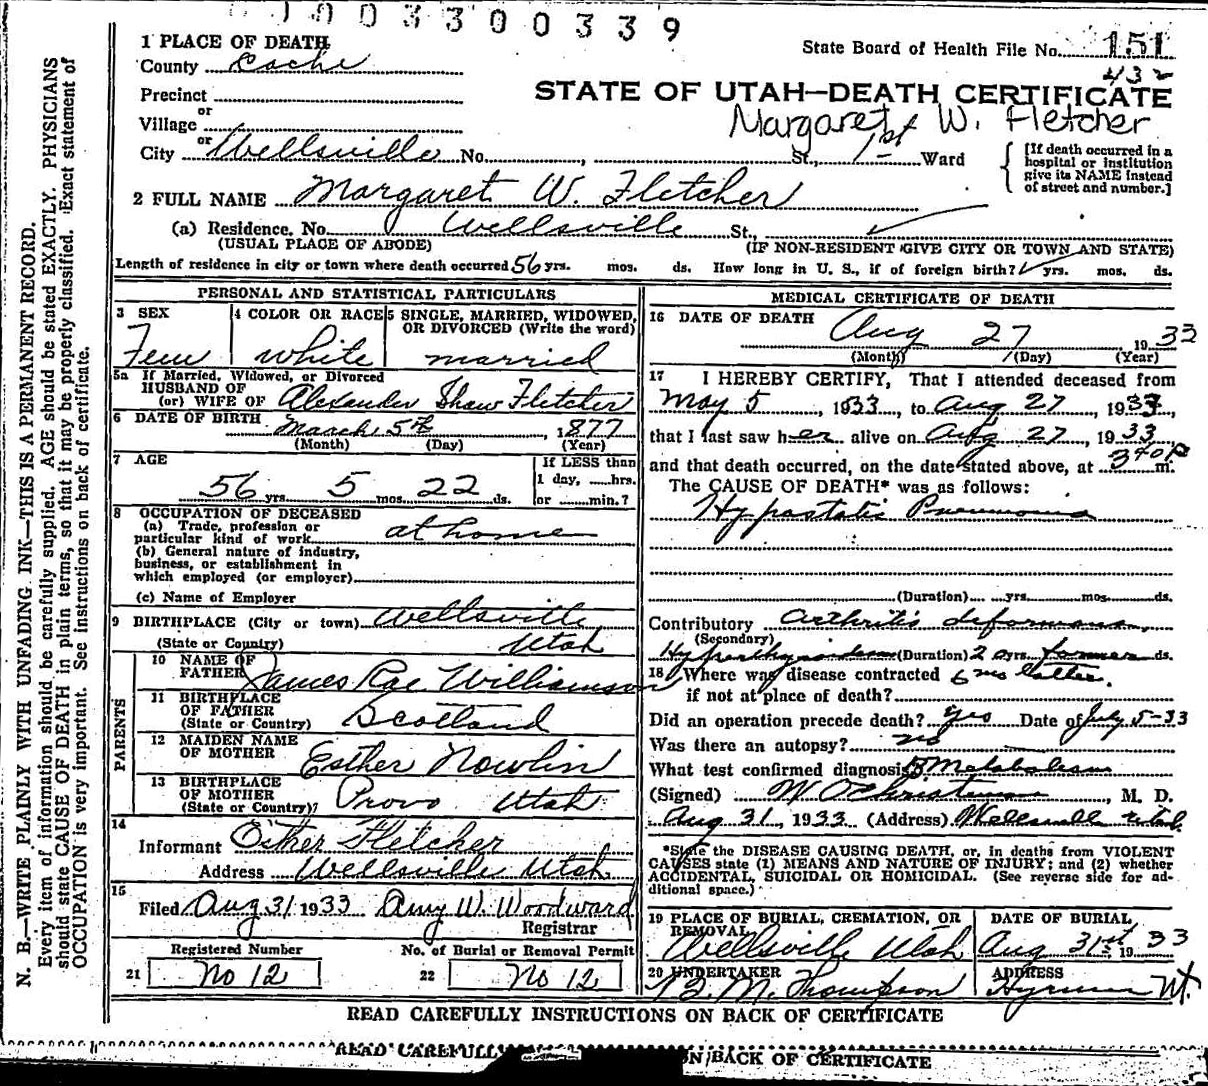 1003300339
1 PLACE OF DEATH
State Board of Health File No. 151
County Cache
432
Precinct
STATE OF UTAH—DEATH CERTIFICATE
or
Village
Margaret W. Fletcher
or
City Wellsville No. St., 1st Ward
[If death occurred in a
hospital or institution
give its NAME instead
of street and number.]
2 FULL NAME Margaret W. Fletcher
(a) Residence. No. Wellsville St.,
(USUAL PLACE OF ABODE) (IF NON-RESIDENT GIVE CITY OR TOWN AND STATE)
Length of residence in city or town where death occurred 56 yrs. mos. ds. How long in U. S., if of foreign birth? yrs. mos. ds.
PERSONAL AND STATISTICAL PARTICULARS
3 SEX
Fem
4 COLOR OR RACE
white
5 SINGLE, MARRIED, WIDOWED,
OR DIVORCED (Write the word)
married
5a If Married, Widowed, or Divorced
HUSBAND OF
(or) WIFE OF Alexander Shaw Fletcher
6 DATE OF BIRTH March 5th, 1877
(Month) (Day) (Year)
7 AGE
56 yrs 5 mos. 22 ds.
If LESS than
1 day, ......hrs.
or ......min.?
8 OCCUPATION OF DECEASED
(a) Trade, profession or
particular kind of work at home
(b) General nature of industry,
business, or establishment in
which employed (or employer)
(c) Name of Employer
9 BIRTHPLACE (City or town) Wellsville
(State or Country) Utah
PARENTS
10 NAME OF
FATHER James Rae Williamson
11 BIRTHPLACE
OF FATHER
(State or Country) Scotland
12 MAIDEN NAME
OF MOTHER Esther Nowlin
13 BIRTHPLACE
OF MOTHER
(State or Country) Provo Utah
14
Informant Esther Fletcher
Address Wellsville Utah
15
Filed Aug 31 1933 Amy W. Woodward
Registrar
Registered Number
21 No 12
No. of Burial or Removal Permit
22 No 12
MEDICAL CERTIFICATE OF DEATH
16 DATE OF DEATH
Aug 27 1933
(Month) (Day) (Year)
17 I HEREBY CERTIFY, That I attended deceased from
May 5, 1933, to Aug 27, 1933,
that I last saw her alive on Aug 27, 1933
and that death occurred, on the date stated above, at 340 P m.
The CAUSE OF DEATH* was as follows:
Hypostatic Pneumonia
(Duration) yrs. mos. ds.
Contributory Arthritis deformans,
(Secondary)
Hyperthyroidism (Duration) 20 yrs. former ds.
18 Where was disease contracted 6 mo latter.
if not at place of death?
Did an operation precede death? yes Date of July 5-33
Was there an autopsy? no
What test confirmed diagnosis? B Metabolism
(Signed) W O Christensen, M. D.
Aug 31, 1933 (Address) Wellsville Utah
*State the DISEASE CAUSING DEATH, or, in deaths from VIOLENT
CAUSES state (1) MEANS AND NATURE OF INJURY; and (2) whether
ACCIDENTAL, SUICIDAL OR HOMICIDAL. (See reverse side for ad-
ditional space.)
19 PLACE OF BURIAL, CREMATION, OR
REMOVAL
Wellsville Utah
DATE OF BURIAL
Aug 31st, 1933
20 UNDERTAKER
M. Thompson
ADDRESS
Hyrum Ut.
READ CAREFULLY INSTRUCTIONS ON BACK OF CERTIFICATE
READ CAREFULLY
ON BACK OF CERTIFICATE
N. B.—WRITE PLAINLY WITH UNFADING INK—THIS IS A PERMANENT RECORD.
Every item of information should be carefully supplied. AGE should be stated EXACTLY. PHYSICIANS
should state CAUSE OF DEATH in plain terms, so that it may be properly classified. Exact statement of
OCCUPATION is very important. See instructions on back of certificate.